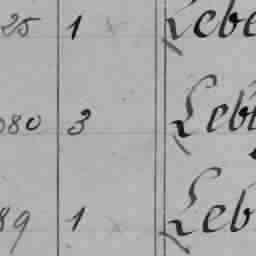 25 1 Lebe
080 3 Leb
89 1 Leb